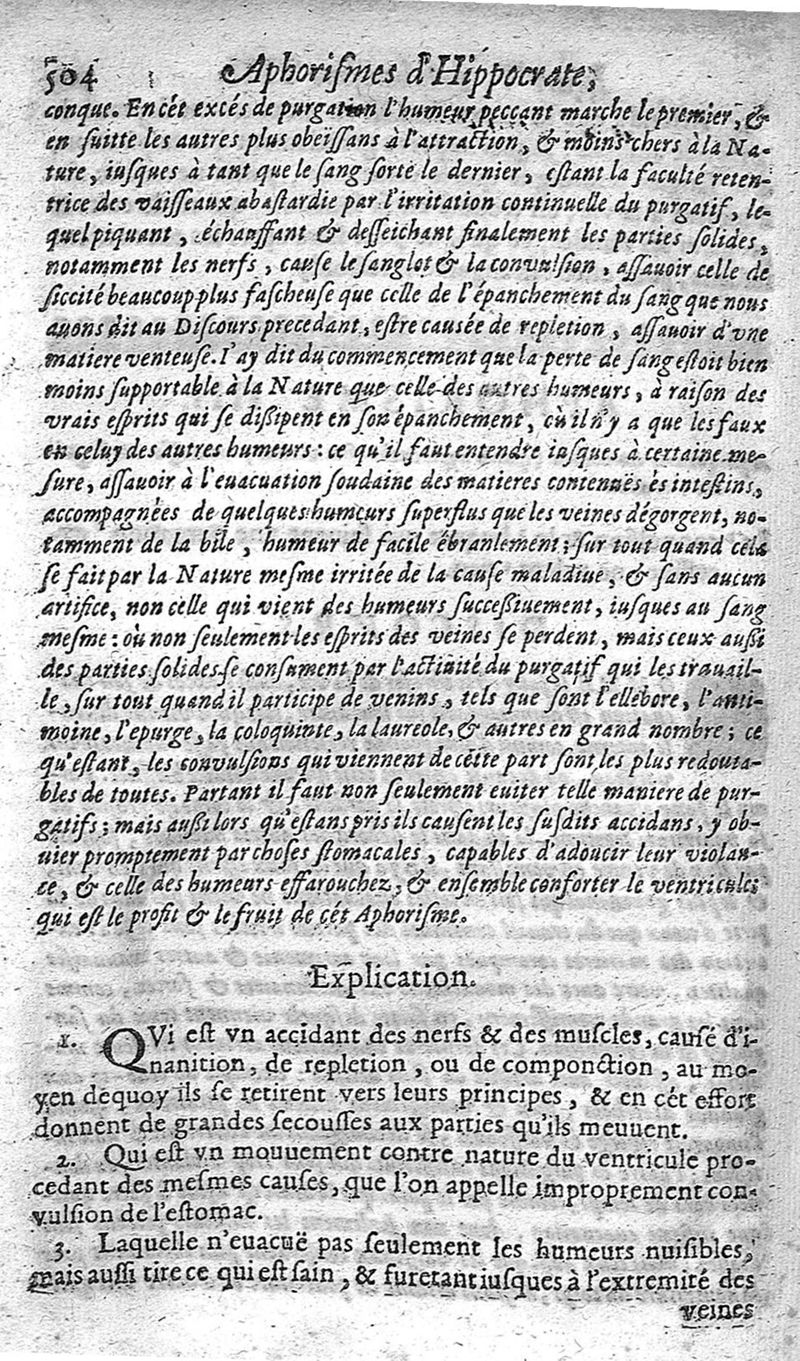 504 Aphorismes d'Hippocrate,
conque. En cét excés de purgation l'humeur peccant marche le premier, &
en suitte les autres plus obeïssans à l'attraction, & moins chers à la Na-
ture, iusques à tant que le sang sorte le dernier, estant la faculté reten-
trice des vaisseaux abastardie par l'irritation continuelle du purgatif, le-
quel piquant, échauffant & desseichant finalement les parties solides,
notamment les nerfs, cause le sanglot & la convulsion, assavoir celle de
siccité beaucoup plus fascheuse que celle de l'épanchement du sang que nous
auons dit au Discours precedant, estre causée de repletion, assavoir d'vne
matiere venteuse. I'ay dit du commencement que la perte de sang estoit bien
moins supportable à la Nature que celle des autres humeurs, à raison des
vrais esprits qui se dissipent en son épanchement, où il n'y a que les faux
en celuy des autres humeurs: ce qu'il faut entendre iusques à certaine me-
sure, assavoir à l'euacuation soudaine des matieres contenuës és intestins,
accompagnées de quelques humeurs superflus que les veines dégorgent, no-
tamment de la bile, humeur de facile ébranlement; sur tout quand cela
se fait par la Nature mesme irritée de la cause maladiue, & sans aucun
artifice, non celle qui vient des humeurs successiuement, iusques au sang
mesme: où non seulement les esprits des veines se perdent, mais ceux aussi
des parties solides se consument par l'actiuité du purgatif qui les travail-
le, sur tout quand il participe de venins, tels que sont l'ellebore, l'anti-
moine, l'epurge, la coloquinte, la laureole, & autres en grand nombre; ce
qu'estant, les convulsions qui viennent de cette part sont les plus redouta-
bles de toutes. Partant il faut non seulement euiter telle maniere de pur-
gatifs; mais aussi lors qu'estans pris ils causent les susdits accidans, y ob-
uier promptement par choses stomacales, capables d'adoucir leur violan-
ce, & celle des humeurs effarouchez, & ensemble conforter le ventricule;
qui est le profit & le fruit de cét Aphorisme.
Explication.
1. QVi est vn accidant des nerfs & des muscles, causé d'i-
nanition, de repletion, ou de componction, au mo-
yen dequoy ils se retirent vers leurs principes, & en cét effort
donnent de grandes secousses aux parties qu'ils meuuent.
2. Qui est vn mouuement contre nature du ventricule pro-
cedant des mesmes causes, que l'on appelle improprement con-
vulsion de l'estomac.
3. Laquelle n'euacuë pas seulement les humeurs nuisibles,
mais aussi tire ce qui est sain, & furetant iusques à l'extremité des
veines